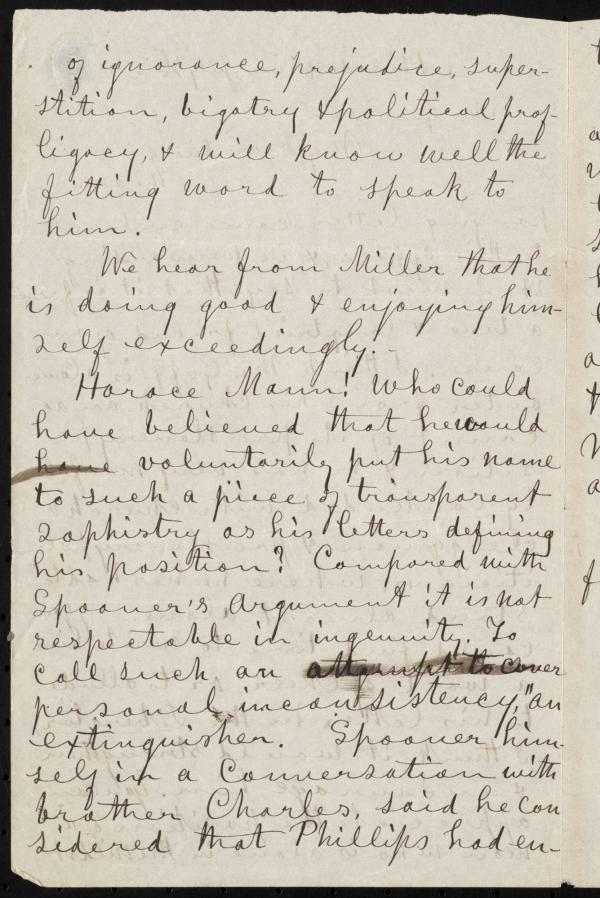 of ignorance, prejudice, super-
stition, bigotry & political prof-
ligacy, & will know well the
fitting word to speak to
him.
We hear from Miller that he
is doing good & enjoying him-
self exceedingly.-
Horace Mann! Who could
have believed that he would
have voluntarily put his name
to such a piece of transparent
sophistry as his letters defining
his position? Compared with
Spooner's argument it is not
respectable in ingenuity. To
call such an attempt to cover
personal inconsistency, "an
extinguisher. Spooner him-
self in a Conversation with
brother Charles, said he con
sidered that Phillips had en-